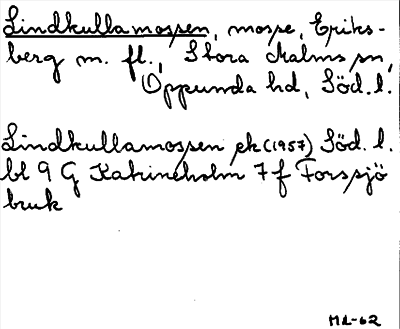 Lindkullamossen, mosse, Eriks-
berg m. fl., Stora Malms sn,
Oppunda hd, Söd. l.
Lindkullamossen ek (1957) Söd. l.
bl 9 G Katrineholm 7 f Forssjö
bruk
ML-62